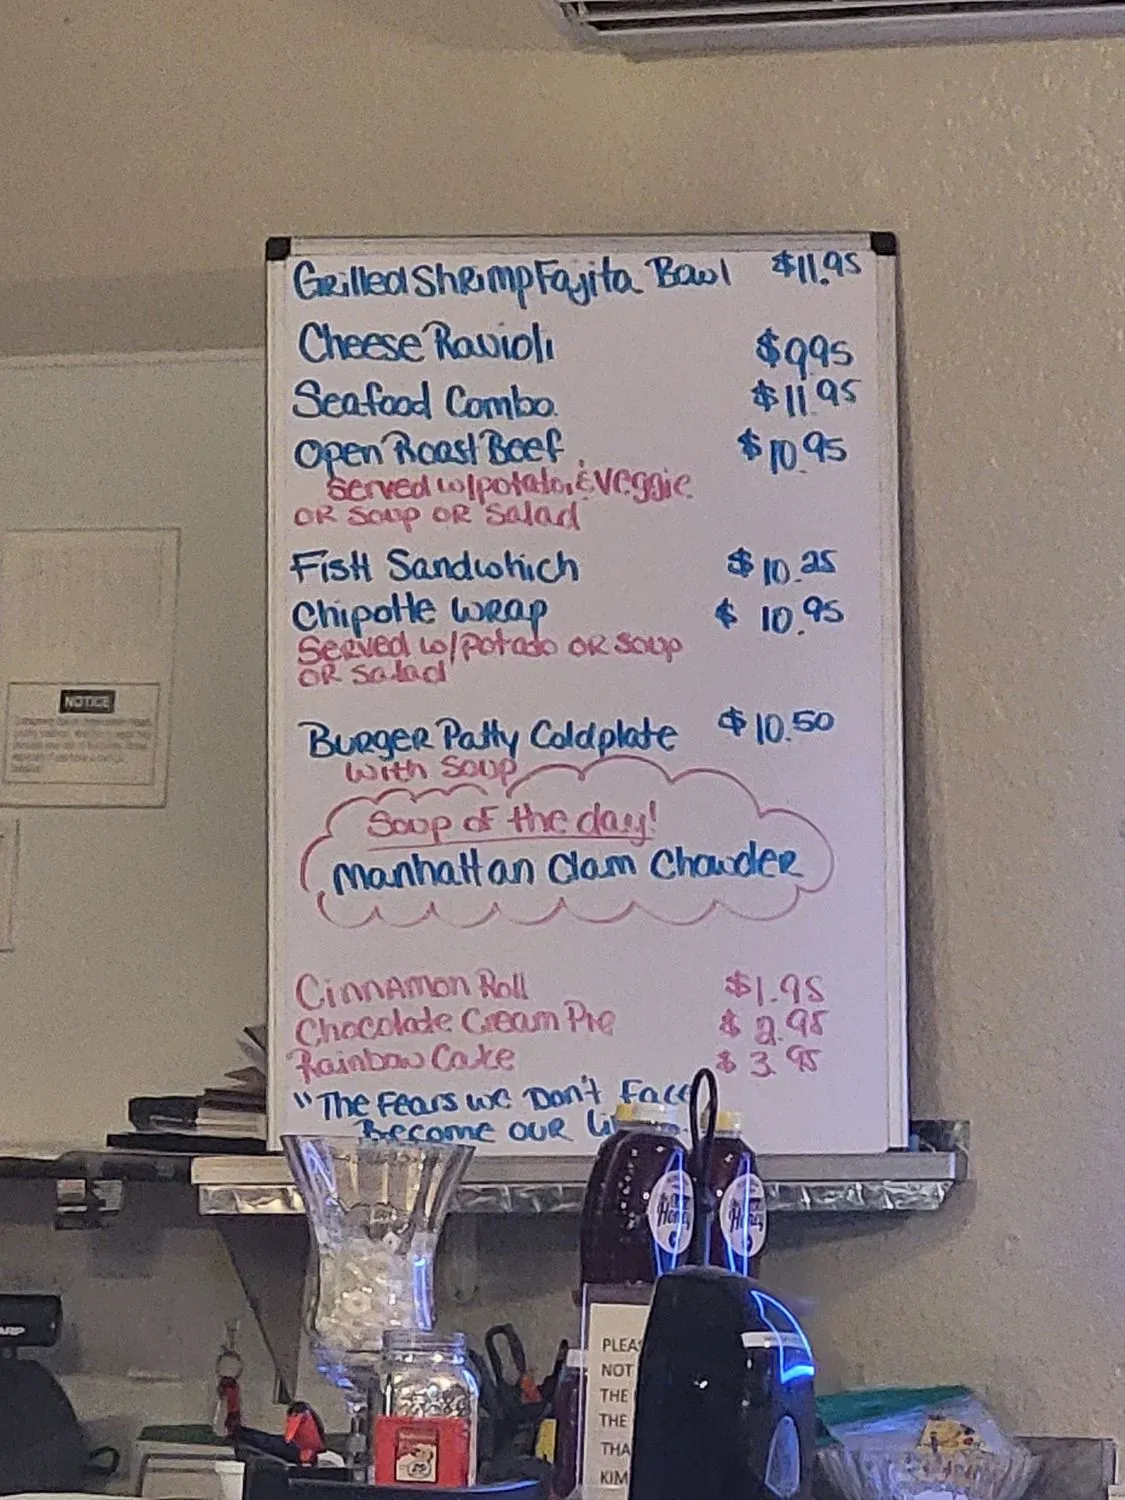 Grilled Shrimp Fajita Bowl $11.95
Cheese Ravioli $9.95
Seafood Combo $11.95
Open Roast Beef $10.95
Served w/potato, & Veggie
OR Soup OR Salad
Fish Sandwhich $10.25
Chipotle Wrap $10.95
Served w/Potato OR Soup
OR Salad
Burger Patty Coldplate $10.50
With Soup
Soup of the day!
Manhattan Clam Chowder
Cinnamon Roll $1.95
Chocolate Cream Pie $2.95
Rainbow Cake $3.95
"The Fears we Don't Face
Become our
NOTICE
Honey
Honey
PLEA
NOT
THE
THE
THA
KIM